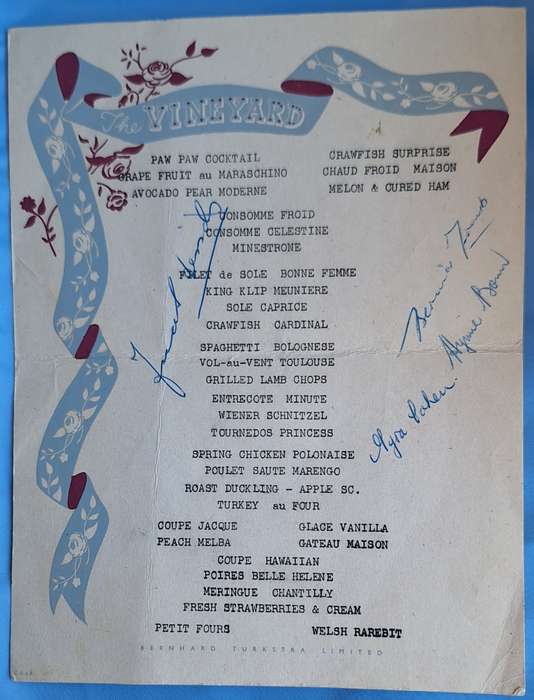 The VINEYARD
PAW PAW COCKTAIL CRAWFISH SURPRISE
GRAPE FRUIT au MARASCHINO CHAUD FROID MAISON
AVOCADO PEAR MODERNE MELON & CURED HAM
CONSOMME FROID
CONSOMME CELESTINE
MINESTRONE
FILET de SOLE BONNE FEMME
KING KLIP MEUNIERE
SOLE CAPRICE
CRAWFISH CARDINAL
SPAGHETTI BOLOGNESE
VOL-au-VENT TOULOUSE
GRILLED LAMB CHOPS
ENTRECOTE MINUTE
WIENER SCHNITZEL
TOURNEDOS PRINCESS
SPRING CHICKEN POLONAISE
POULET SAUTE MARENGO
ROAST DUCKLING - APPLE SC.
TURKEY au FOUR
COUPE JACQUE GLACE VANILLA
PEACH MELBA GATEAU MAISON
COUPE HAWAIIAN
POIRES BELLE HELENE
MERINGUE CHANTILLY
FRESH STRAWBERRIES & CREAM
PETIT FOURS WELSH RAREBIT
BERNHARD TURKSTRA LIMITED
Bernia
Hymie
Cohen.